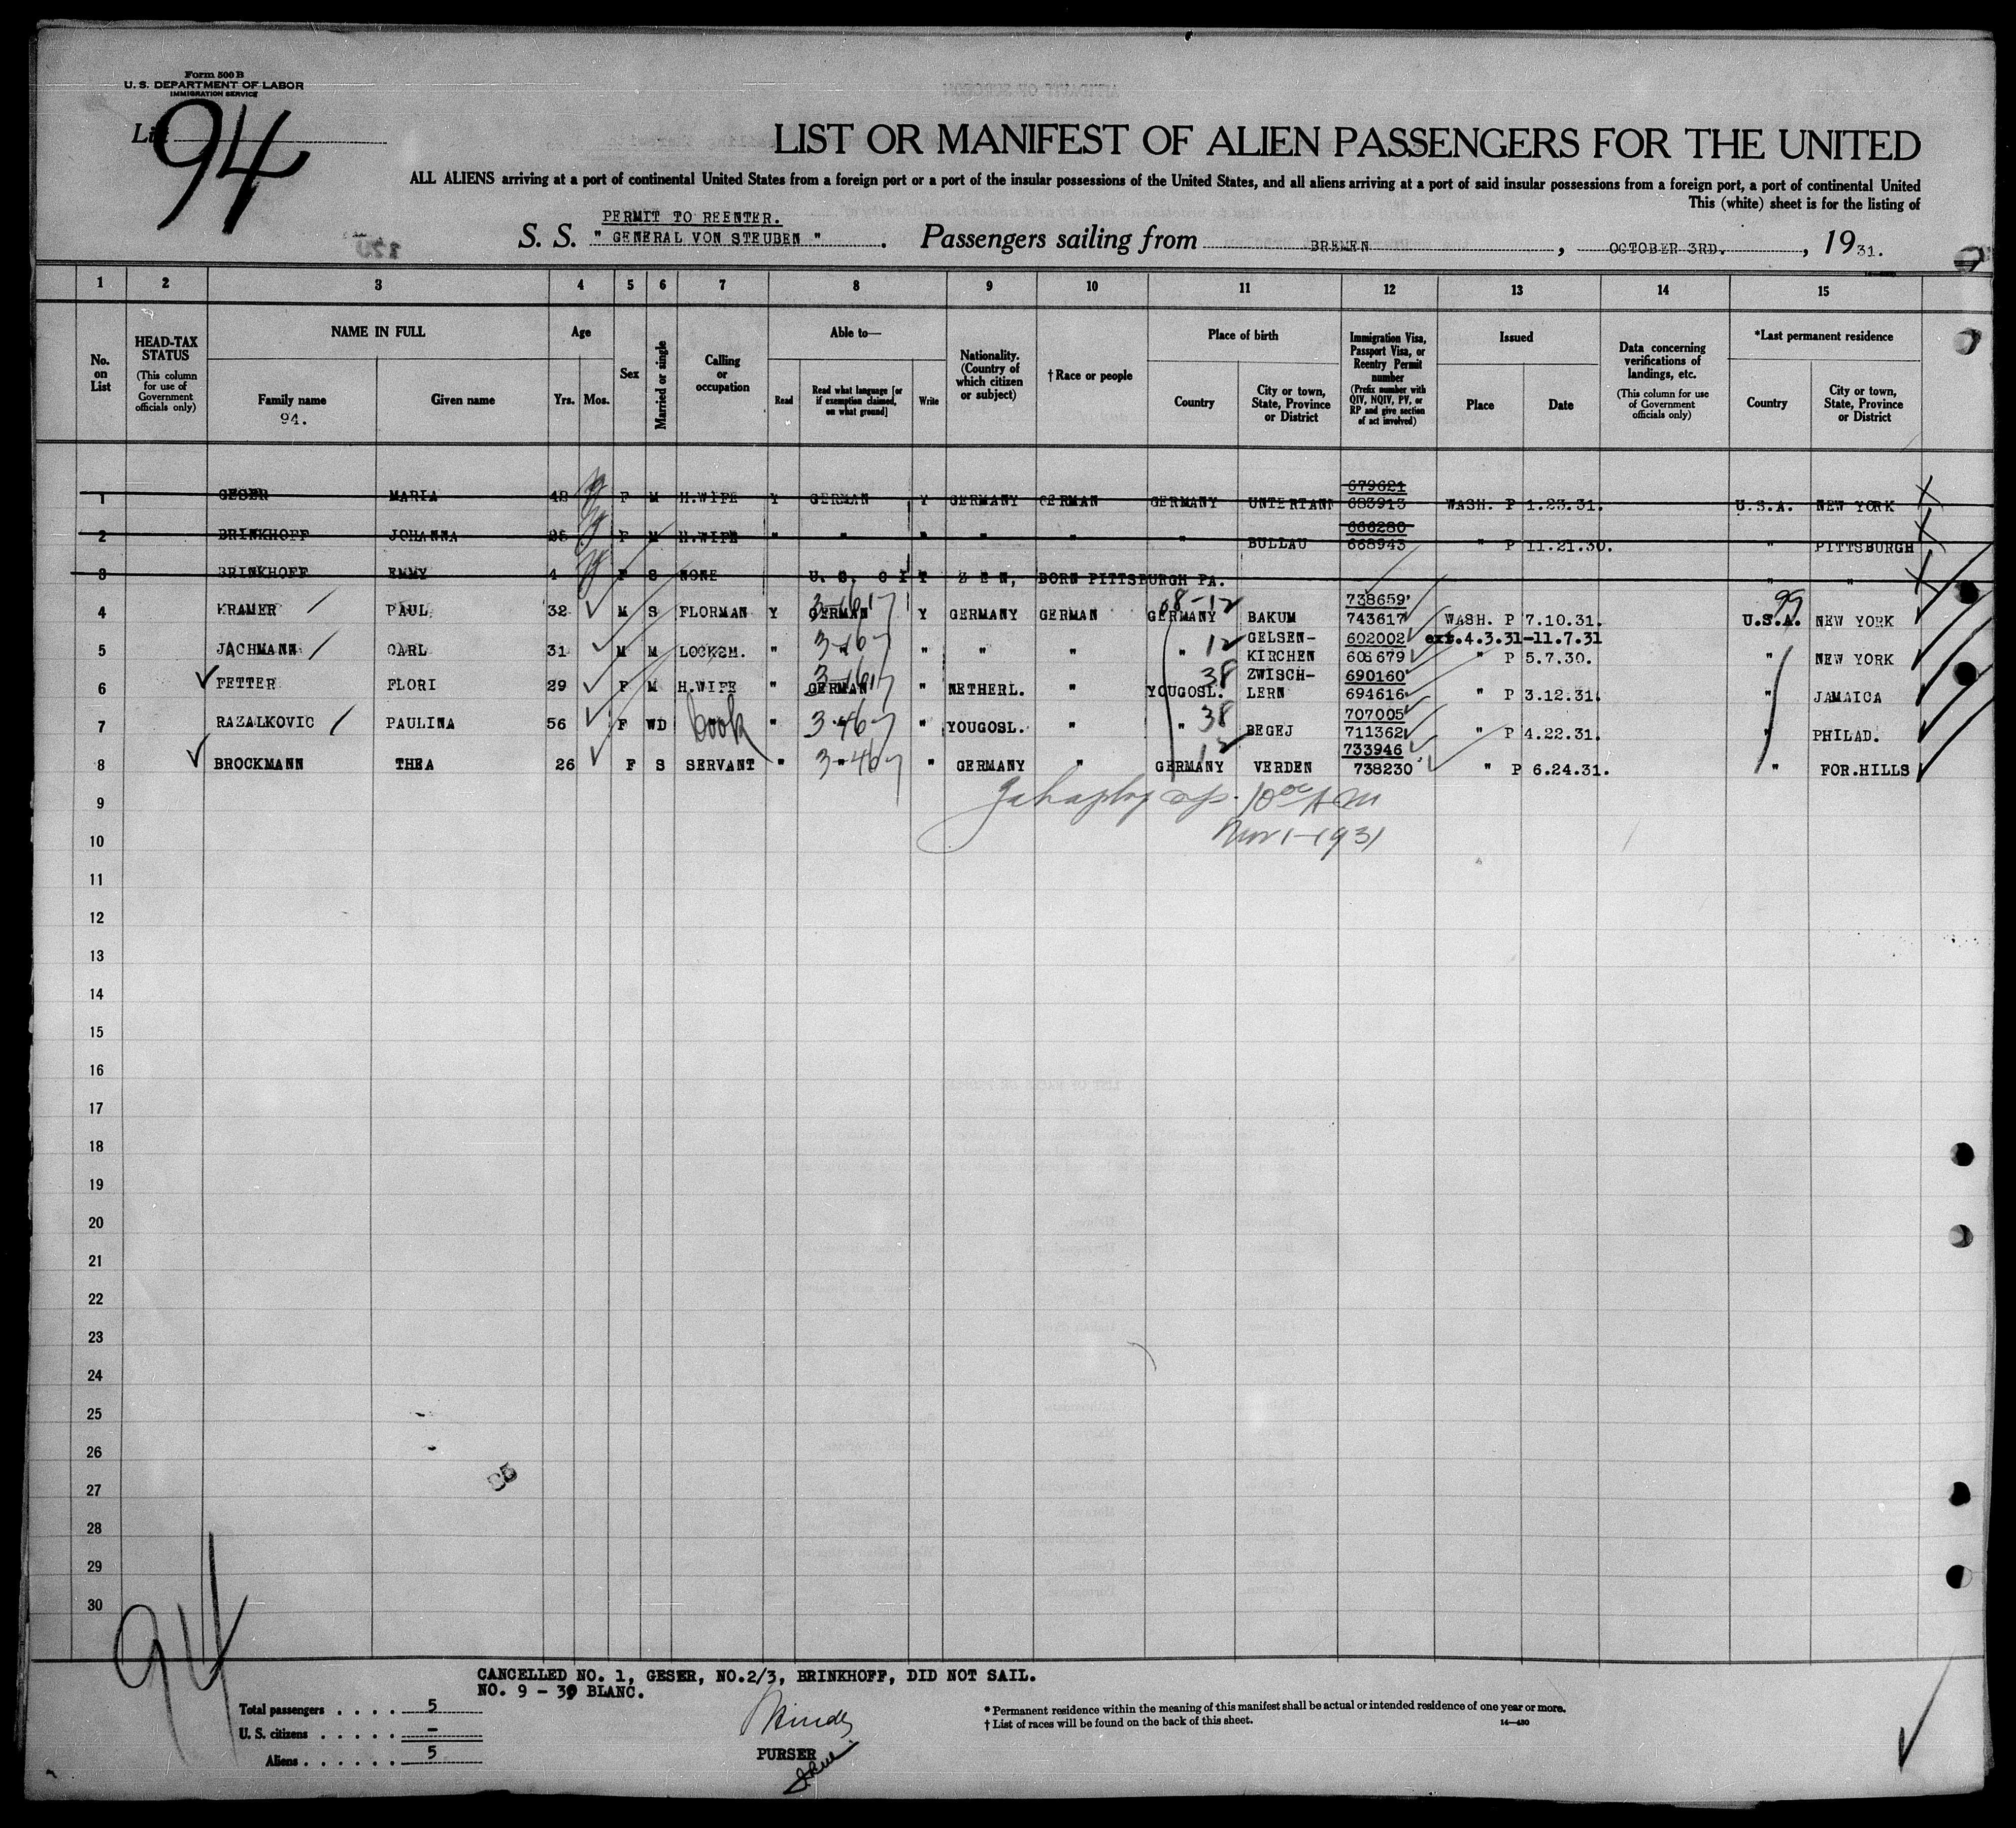 Form 500 B
U. S. DEPARTMENT OF LABOR
IMMIGRATION SERVICE
List 94
LIST OR MANIFEST OF ALIEN PASSENGERS FOR THE UNITED
ALL ALIENS arriving at a port of continental United States from a foreign port or a port of the insular possessions of the United States, and all aliens arriving at a port of said insular possessions from a foreign port, a port of continental United
This (white) sheet is for the listing of
PERMIT TO REENTER.
S. S. " GENERAL VON STEUBEN " . Passengers sailing from BREMEN , OCTOBER 3RD. , 1931.
1 2 3 4 5 6 7 8 9 10 11 12 13 14 15
No. on List
HEAD-TAX STATUS (This column for use of Government officials only)
NAME IN FULL
Family name
94.
Given name
Age
Yrs. Mos.
Sex
Married or single
Calling or occupation
Able to—
Read
Read what language [or if exemption claimed, on what ground]
Write
Nationality. (Country of which citizen or subject)
† Race or people
Place of birth
Country
City or town, State, Province or District
Immigration Visa, Passport Visa, or Reentry Permit number (Prefix number with QIV, NQIV, PV, or RP and give section of act involved)
Issued
Place
Date
Data concerning verifications of landings, etc. (This column for use of Government officials only)
*Last permanent residence
Country
City or town, State, Province or District
679621
1 GESER MARIA 48 F M H.WIFE Y GERMAN Y GERMANY GERMAN GERMANY 683913 WASH. P 1.23.31. U.S.A. NEW YORK
666280
2 BRINKHOFF JOHANNA F M H.WIFE " " " " " " BULLAU 668943 " P 11.21.30. " PITTSBURGH
3 BRINKHOFF EMMY 4 F S NONE U. S. CITIZEN, BORN PITTSBURGH PA. " "
738659 99
4 KRAMER PAUL 32 M S FLORMAN Y GERMAN Y GERMANY GERMAN GERMANY BAKUM 743617 WASH. P 7.10.31. U.S.A. NEW YORK
3-167 12 GELSEN- 602002 ext.4.3.31-11.7.31
5 JACHMANN CARL 31 M M LOCKSM. " " " " " " KIRCHEN 606679 " P 5.7.30. " NEW YORK
38 ZWISCH- 690160
6 FETTER FLORI 29 F M H.WIFE " GERMAN " NETHERL. " YOUGOSL. LERN 694616 " P 3.12.31. " JAMAICA
38 707005
7 RAZALKOVIC PAULINA 56 F WD " " " YOUGOSL. " " BEGEJ 711362 " P 4.22.31. " PHILAD.
12 733946
8 BROCKMANN THEA 26 F S SERVANT " " " GERMANY " GERMANY VERDEN 738230 " P 6.24.31. " FOR.HILLS
9
10⁰⁰ AM
10 Nov 1-1931
11
12
13
14
15
16
17
18
19
20
21
22
23
24
25
26
27
28
29
30
94
CANCELLED NO. 1, GESER, NO.2/3, BRINKHOFF, DID NOT SAIL.
NO. 9 - 30 BLANC.
Total passengers . . . . 5
U. S. citizens . . . . . —
Aliens . . . . . . 5
PURSER
* Permanent residence within the meaning of this manifest shall be actual or intended residence of one year or more.
† List of races will be found on the back of this sheet.
14—430